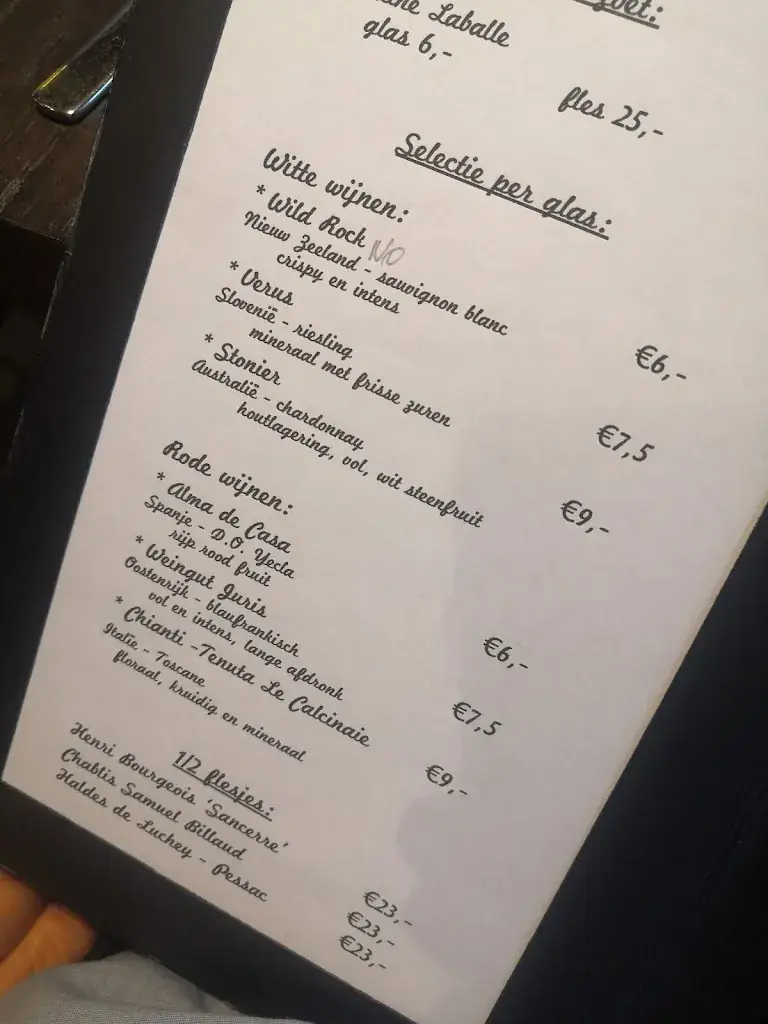 Laballe
glas 6,-
fles 25,-
Selectie per glas:
Witte wijnen:
* Wild Rock NO
Nieuw Zeeland - sauvignon blanc
crispy en intens €6,-
* Verus
Slovenië - riesling
mineraal met frisse zuren €7,5
* Stonier
Australië - chardonnay
houtlagering, vol, wit steenfruit €9,-
Rode wijnen:
* Alma de Casa
Spanje - D.O. Yecla
rijp rood fruit €6,-
* Weingut Juris
Oostenrijk - blaufrankisch
vol en intens, lange afdronk €7,5
* Chianti -Tenuta Le Calcinaie
Italië - Toscane
floraal, kruidig en mineraal €9,-
1/2 flesjes:
Henri Bourgeois 'Sancerre' €23,-
Chablis Samuel Billaud €23,-
Haldes de Luchey - Pessac €23,-